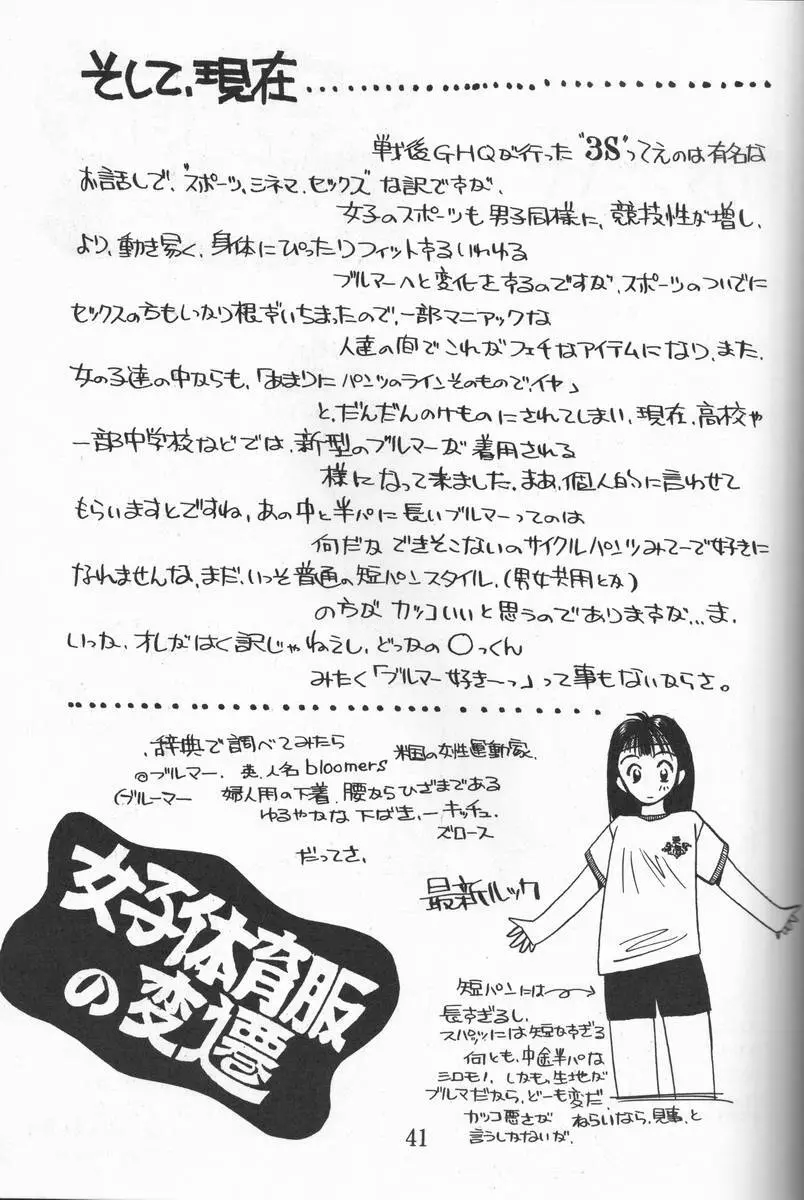 そして、現在……………………………
戦後GHQが行った"3S"ってえのは有名な
お話しで、"スポーツ、シネマ、セックス"な訳ですが、
女子のスポーツも男子同様に、競技性が増し、
より、動き易く、身体にぴったりフィットするいわゆる
ブルマーへと変化をするのですが、スポーツのついでに
セックスの方もしっかり根ずいちまったので、一部マニアックな
人達の間でこれがフェチなアイテムになり、また、
女の子達の中からも、「あまりにパンツのラインそのもので、イヤ」
と、だんだんのけものにされてしまい、現在、高校や
一部中学校などでは、新型のブルマーが着用される
様になって来ました。まあ、個人的に言わせて
もらいますとですね、あの中と半パに長いブルマーってのは
何だか できそこないのサイクルパンツみてーで好きに
なれませんな、まだ、いっそ普通の短パンスタイル、(男女共用とか)
の方が カッコいいと思うのでありますが…ま、
いっか、オレがはく訳じゃねえし、どっかの〇っくん
みたく「ブルマー好き〜っ」って事もないからさ。
辞典で調べてみたら
米国の女性運動家、
◎ブルマー、英、人名bloomers
(ブルーマー 婦人用の下着、腰からひざまである
ゆるやかな下ばき、ーキッチュ、
ズロース
だってさ、
女子体育服
の変遷
最新ルック
短パンには
長すぎるし、
スパッツには短かすぎる
何とも、中途半パな
シロモノ、しかも、生地が
ブルマだから、どーも変だ、
カッコ悪さが ねらいなら、見事、と
言うしかないが、
41